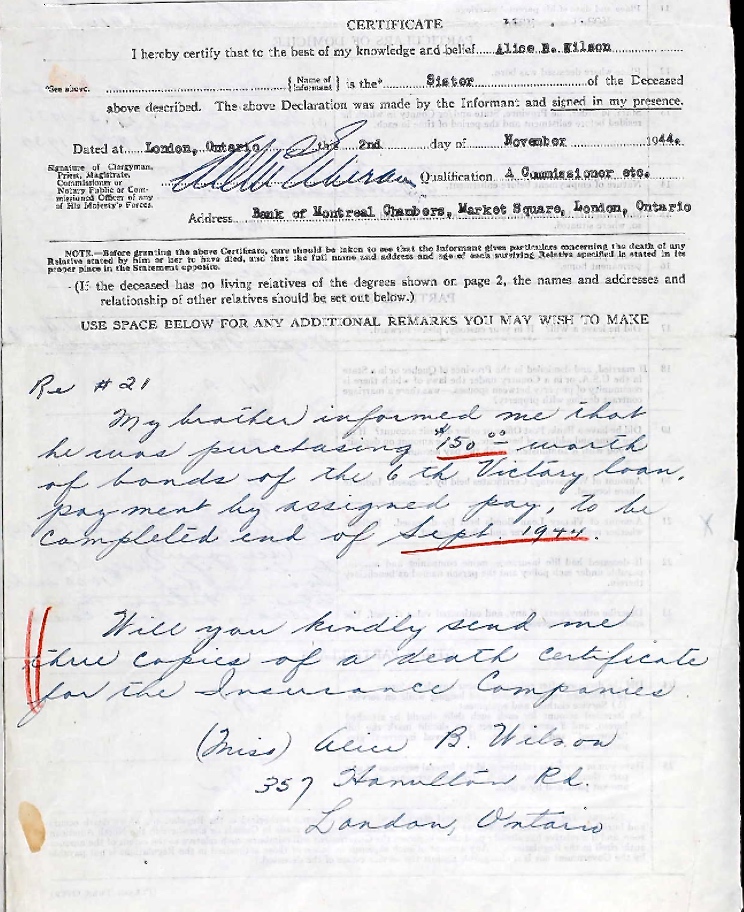 CERTIFICATE
I hereby certify that to the best of my knowledge and belief....Alice B. Wilson
*See above. {Name of Informant} is the* Sister of the Deceased
above described. The above Declaration was made by the Informant and signed in my presence.
Dated at London, Ontario this 2nd day of November 1944.
Signature of Clergyman,
Priest, Magistrate,
Commissioner or
Notary Public or Com-
missioned Officer of any
of His Majesty's Forces.
Qualification A Commissioner etc.
Address Bank of Montreal Chambers, Market Square, London, Ontario
NOTE.—Before granting the above Certificate, care should be taken to see that the Informant gives particulars concerning the death of any
Relative stated by him or her to have died, and that the full name and address and age of each surviving Relative specified is stated in its
proper place in the Statement opposite.
(If the deceased has no living relatives of the degrees shown on page 2, the names and addresses and
relationship of other relatives should be set out below.)
USE SPACE BELOW FOR ANY ADDITIONAL REMARKS YOU MAY WISH TO MAKE
Re #21
My brother informed me that
he was purchasing $150.00 worth
of bonds of the 6th Victory loan,
payment by assigned pay, to be
completed end of Sept. 1944.
Will you kindly send me
three copies of a death certificate
for the Insurance Companies.
(Miss) Alice B. Wilson
357 Hamilton Rd.
London, Ontario